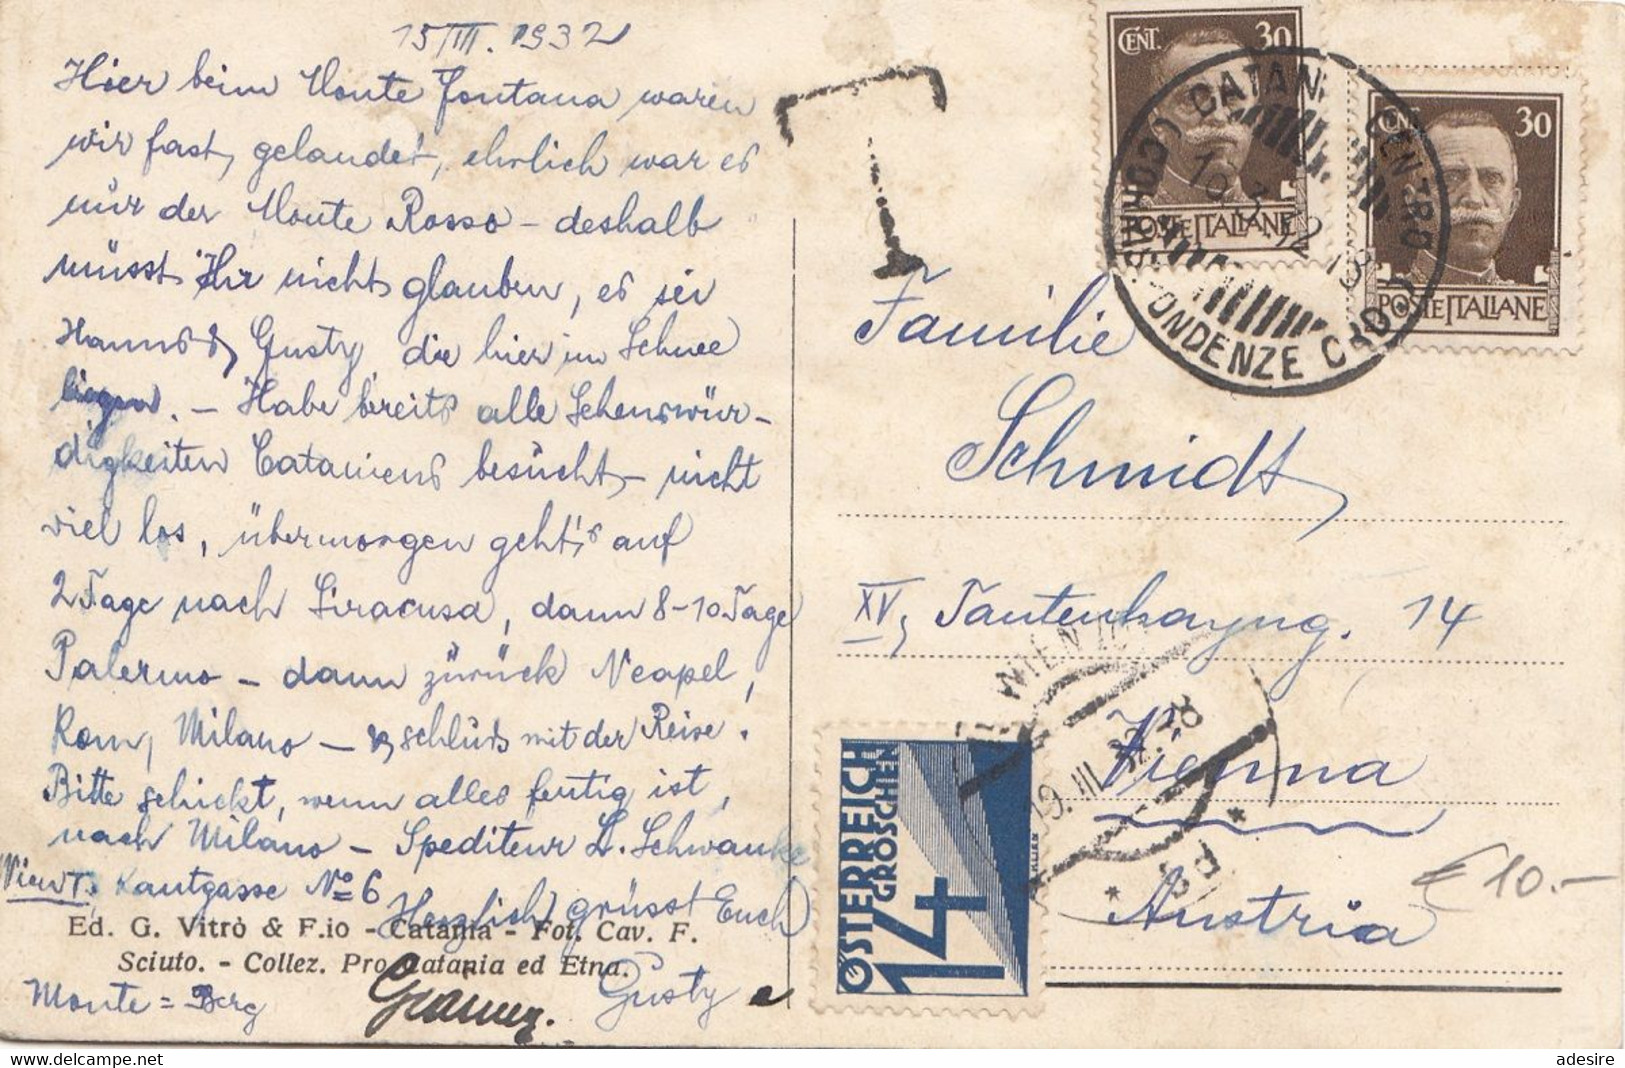 15/III. 1932
Hier beim Monte Fontana waren
wir fast, gelandet, ehrlich war es
nur der Monte Rosso – deshalb
müsst Ihr nicht glauben, es sei
Gusty die hier im Schnee
liegen. – Habe bereits alle Sehenswür-
digkeiten Cataniens besucht – nicht
viel los, übermorgen geht's auf
2 Tage nach Siracusa, dann 8-10 Tage
Palermo – dann zurück Neapel,
Rom, Milano – schluss mit der Reise.
Bitte schickt, wenn alles fertig ist,
nach Milano – Spediteur Schwanke
Kantgasse No 6
Herzlich grüsst Euch
Gusty
Monte = Berg
Ed. G. Vitrò & F.io - Catania - Fot. Cav. F.
Sciuto. - Collez. Pro Catania ed Etna.
T
CENT. 30
POSTE ITALIANE
CENT. 30
POSTE ITALIANE
CATANIA CENTRO
CORRISPONDENZE
Familie
Schmidt
XV, Tautenhayng. 14
Vienna
Austria
WIEN
19.III.32
ÖSTERREICH
14 GROSCHEN
€ 10.-
View Title Page
adesire